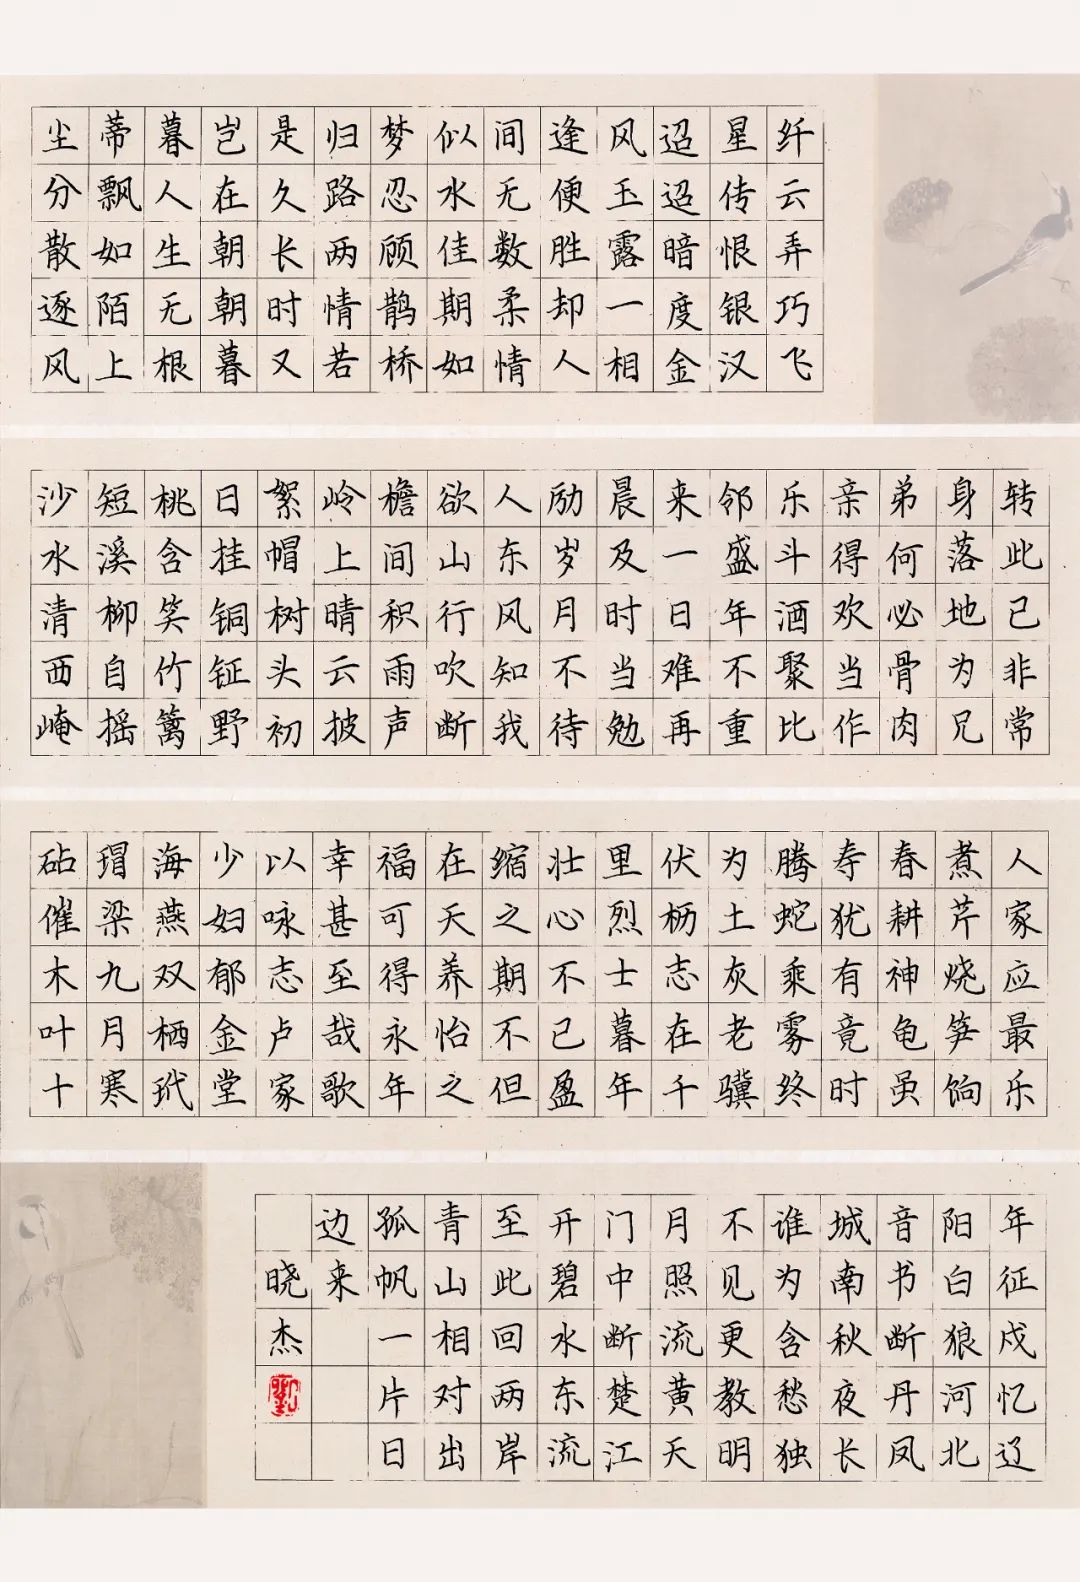 纤云弄巧飞
星传恨银汉
迢迢暗度金
风玉露一相
逢便胜却人
间无数柔情
似水佳期如
梦忍顾鹊桥
归路两情若
是久长时又
岂在朝朝暮
暮人生无根
蒂飘如陌上
尘分散逐风
转此已非常
身落地为兄
弟何必骨肉
亲得欢当作
乐斗酒聚比
邻盛年不重
来一日难再
晨及时当勉
励岁月不待
人东风知我
欲山行吹断
檐间积雨声
岭上晴云披
絮帽树头初
日挂铜钲野
桃含笑竹篱
短溪柳自摇
沙水清西崦
人家应最乐
煮芹烧笋饷
春耕神龟虽
寿犹有竟时
腾蛇乘雾终
为土灰老骥
伏枥志在千
里烈士暮年
壮心不已盈
缩之期不但
在天养怡之
福可得永年
幸甚至哉歌
以咏志卢家
少妇郁金堂
海燕双栖玳
瑁梁九月寒
砧催木叶十
年征戍忆辽
阳白狼河北
音书断丹凤
城南秋夜长
谁为含愁独
不见更教明
月照流黄天
门中断楚江
开碧水东流
至此回两岸
青山相对出
孤帆一片日
边来
晓杰